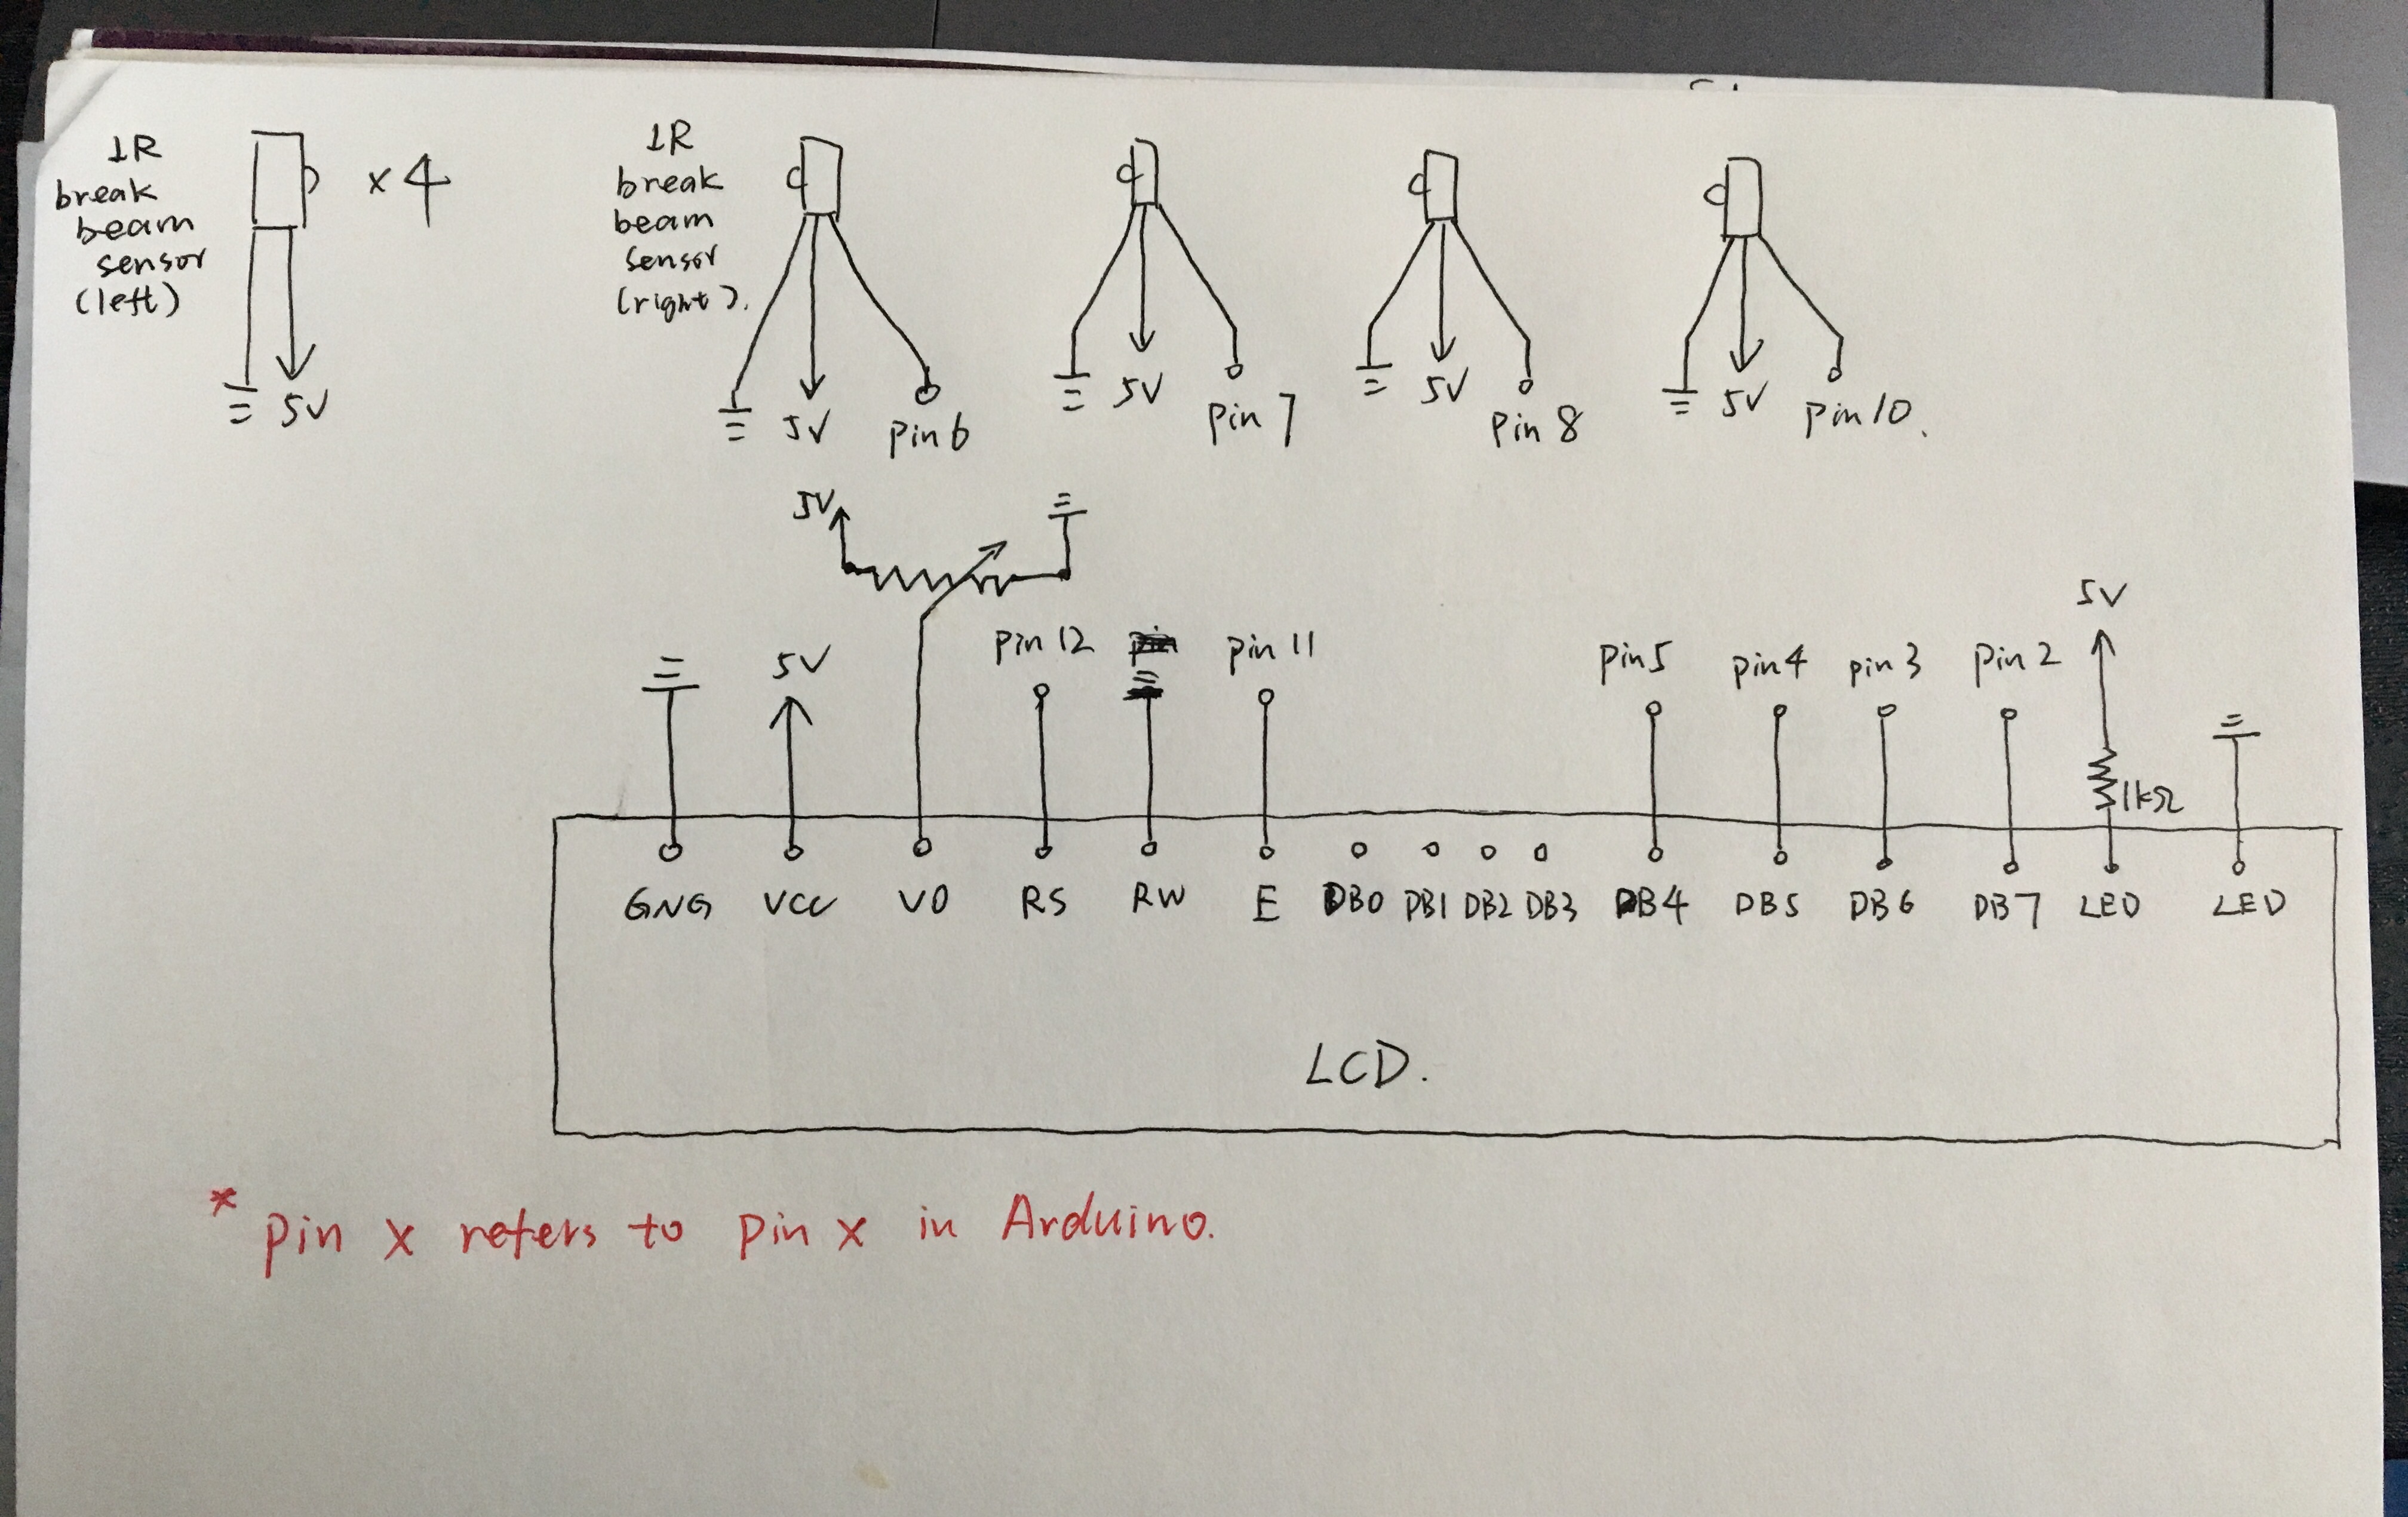 IR
break
beam
sensor
(left)
x4
5V
IR
break
beam
sensor
(right).
5V
pin 6
5V
pin 7
5V
pin 8
5V
pin 10.
5V
5V
pin 12
pin 11
pin 5
pin 4
pin 3
pin 2
5V
1kΩ
GNG VCC VO RS RW E DB0 DB1 DB2 DB3 DB4 DB5 DB6 DB7 LED LED
LCD.
* pin x refers to pin x in Arduino.